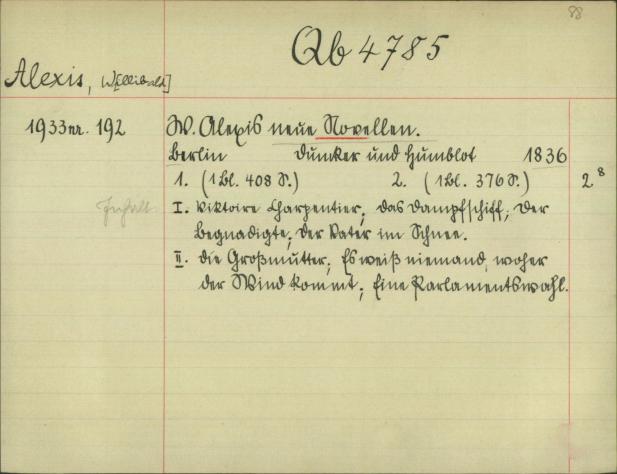 88
Qb 4785
Alexis, W[illibald]
1933nr. 192 W. Alexis neue Novellen.
Berlin Dunker und Humblot 1836
1. (1 Bl. 408 S.) 2. (1 Bl. 376 S.) 2 8
Inhalt. I. Viktoire Charpentier; Das Dampfschiff; Der
Begnadigte; Der Vater im Schnee.
II. Die Großmutter; Es weiß niemand, woher
der Wind kommt; Eine Parlamentswahl.